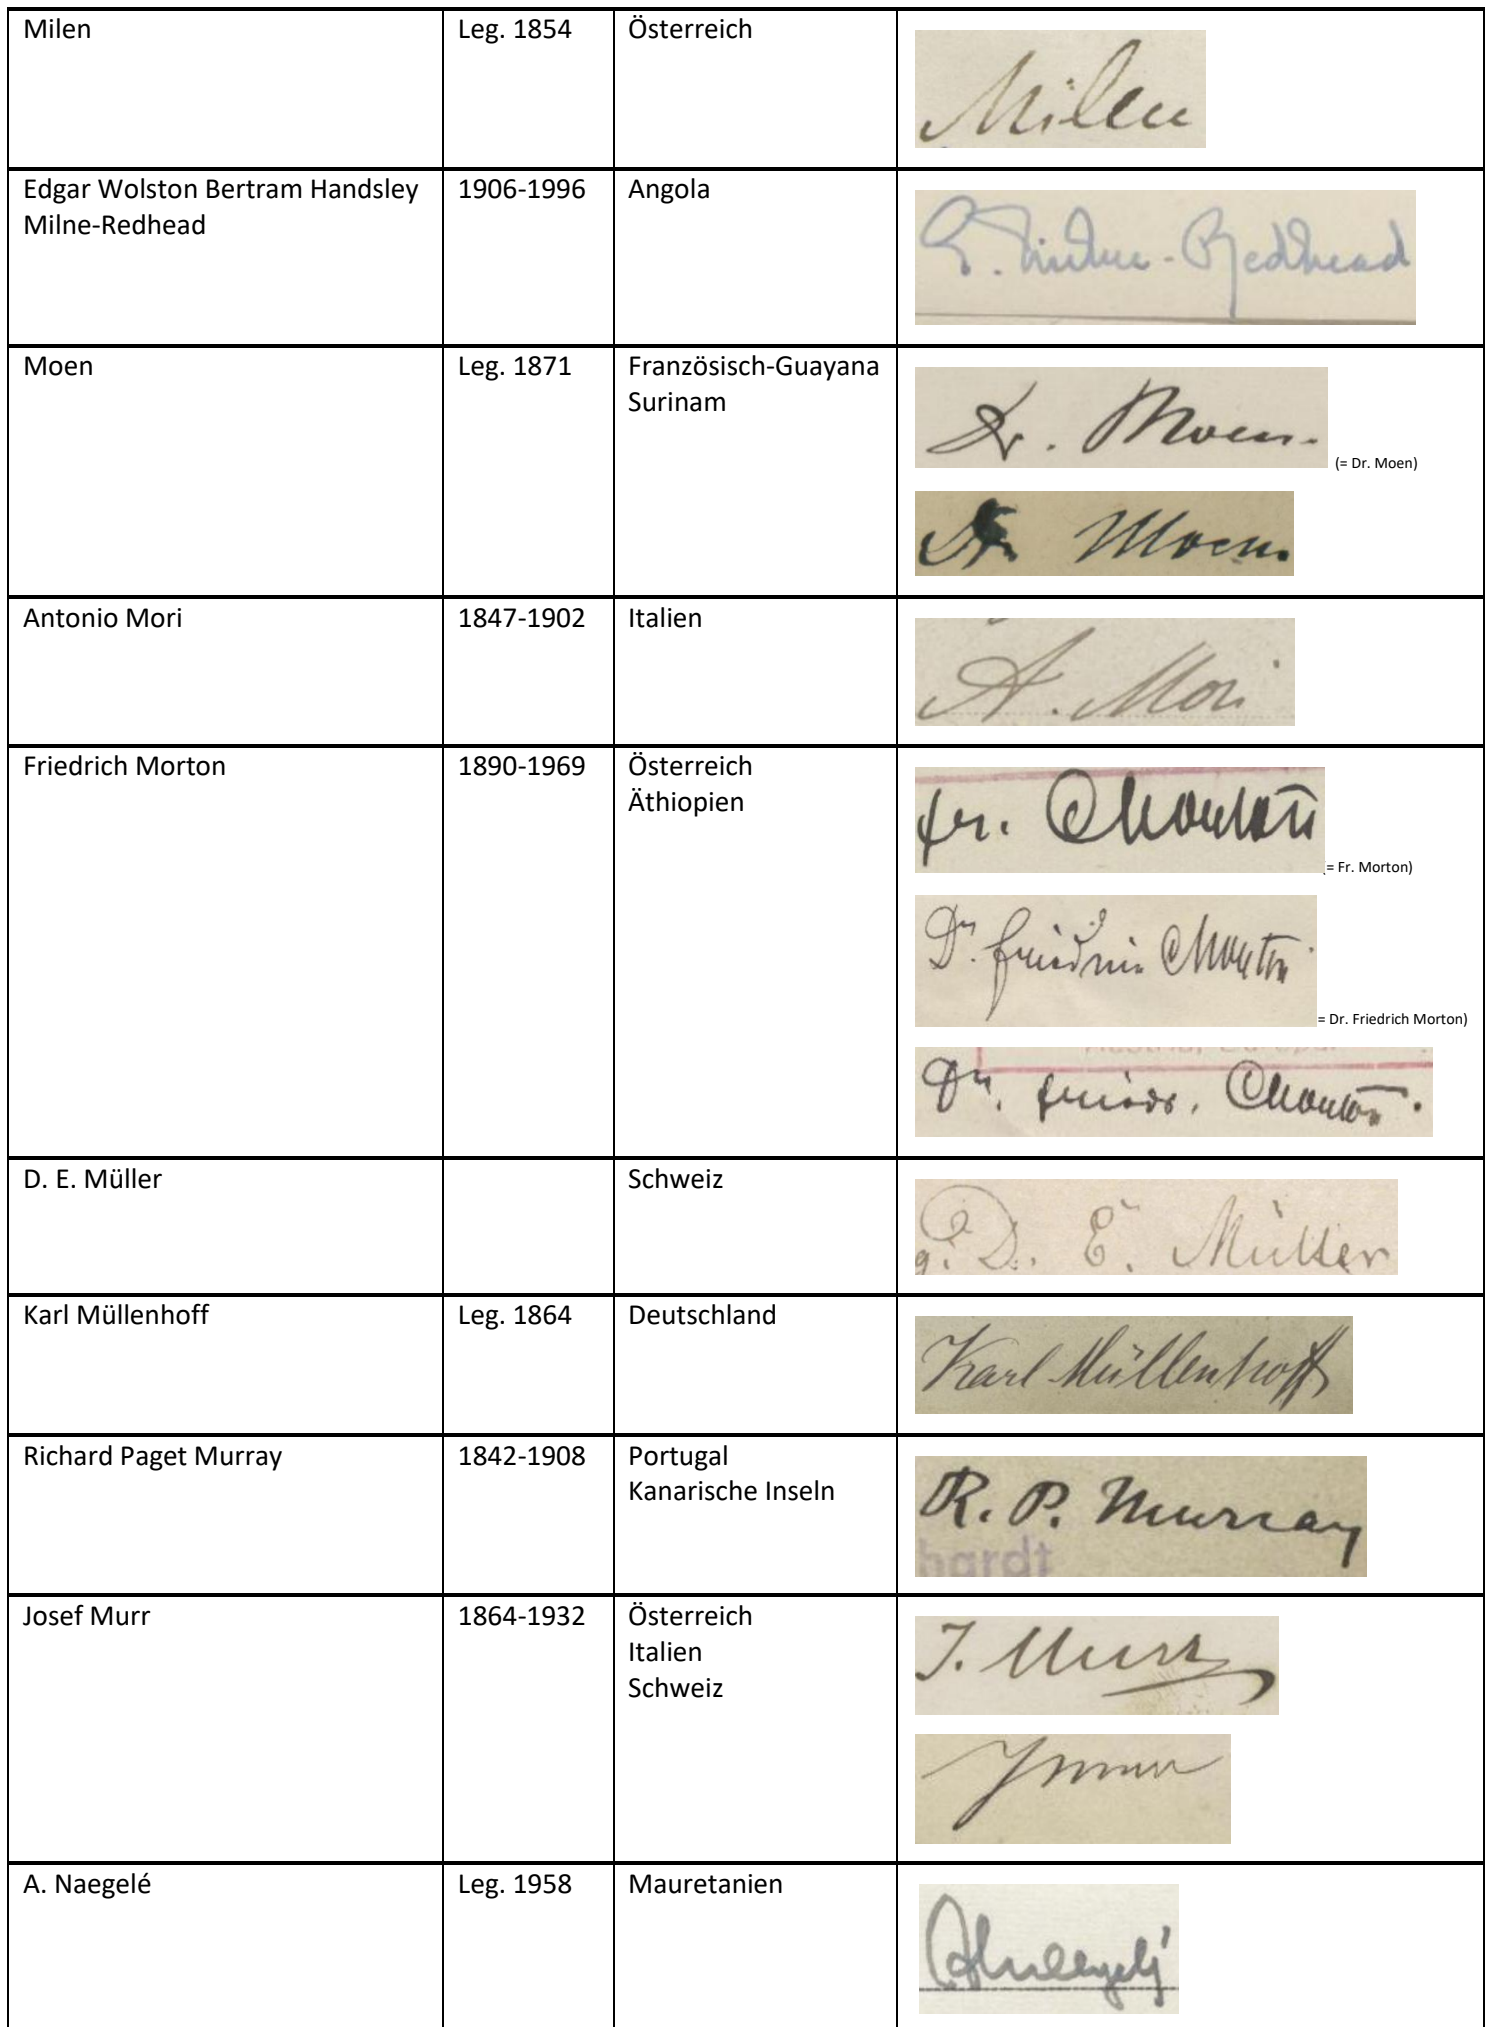 Milen
Leg. 1854
Österreich
Milen
Edgar Wolston Bertram Handsley
Milne-Redhead
1906-1996
Angola
E. Milne-Redhead
Moen
Leg. 1871
Französisch-Guayana
Surinam
Dr. Moen.
(= Dr. Moen)
Dr. Moen.
Antonio Mori
1847-1902
Italien
A. Mori
Friedrich Morton
1890-1969
Österreich
Äthiopien
Fr. Morton
(= Fr. Morton)
Dr. Friedrich Morton
= Dr. Friedrich Morton)
Dr. Friedr. Morton.
D. E. Müller
Schweiz
g. D. E. Müller
Karl Müllenhoff
Leg. 1864
Deutschland
Karl Müllenhoff
Richard Paget Murray
1842-1908
Portugal
Kanarische Inseln
R. P. Murray
hardt
Josef Murr
1864-1932
Österreich
Italien
Schweiz
J. Murr
J Murr
A. Naegelé
Leg. 1958
Mauretanien
A Naegelé